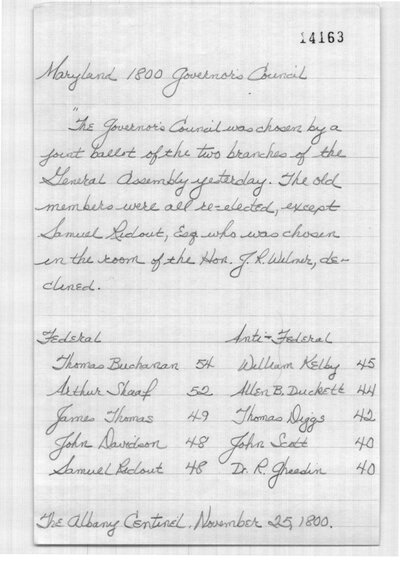 14163
Maryland 1800 Governor's Council
"The Governor's Council was chosen by a
joint ballot of the two branches of the
General Assembly yesterday. The old
members were all re-elected, except
Samuel Ridout, Esq who was chosen
in the room of the Hon. J. R. Wilmer, de-
clined.
Federal Anti-Federal
Thomas Buchanan 54 William Kelby 45
Arthur Shaaf 52 Allen B. Duckett 44
James Thomas 49 Thomas Diggs 42
John Davidson 48 John Scott 40
Samuel Ridout 48 Dr. R. Gheedin 40
The Albany Centinel. November 25, 1800.